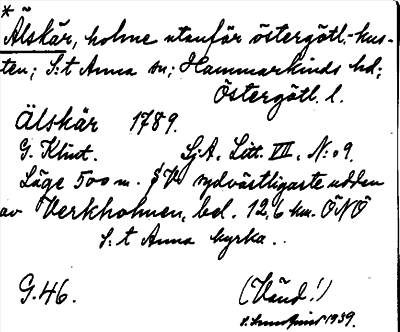 *
Älskär, holme utanför östergötl.-kus-
ten; S:t Anna sn; Hammarkinds hd;
Östergötl. l.
Älskär 1789.
G. Klint. Sj.A. Litt. VII. N:o 9.
Läge 500 m. VSV sydvästligaste udden
av Verkholmen, bel. 12,6 km. ÖNÖ
S:t Anna kyrka..
G.46. (Vänd!)
1939.